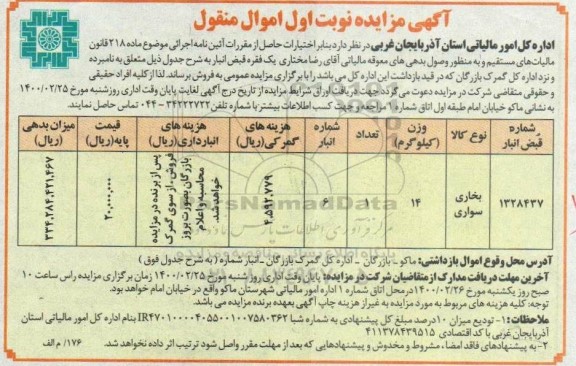 آگهی مزایده نوبت اول اموال منقول
اداره کل امور مالیاتی استان آذربایجان غربی در نظر دارد بنابر اختیارات حاصل از مقررات آئین نامه اجرائی موضوع ماده ۲۱۸ قانون
مالیات‌های مستقیم و به منظور وصول بدهی های معوقه مالیاتی آقای رضا مختاری یک فقره قبض انبار به شرح جدول ذیل متعلق به نامبرده
و نزد اداره کل گمرک بازرگان که در قید بازداشت این اداره کل می باشد را با برگزاری مزایده عمومی به فروش برساند. لذا از کلیه افراد حقیقی
و حقوقی متقاضی شرکت در مزایده دعوت می گردد جهت دریافت اوراق شرایط مزایده از تاریخ درج آگهی لغایت پایان وقت اداری روز شنبه مورخ ۱۴۰۰/۰۲/۲۵
به نشانی ماکو خیابان امام طبقه اول اتاق شماره ۱ مراجعه و جهت کسب اطلاعات بیشتر با شماره تلفن ۳۴۲۲۲۷۲۲ - ۰۴۴ تماس حاصل نمایند.
شماره قبض انبار
نوع کالا
وزن (کیلوگرم)
تعداد
شماره انبار
هزینه های گمرکی(ریال)
هزینه های انبارداری(ریال)
قیمت پایه(ریال)
میزان بدهی (ریال)
۱۳۲۸۴۳۷
بخاری سواری
۱۴
۱
۶
۴,۵۹۲,۷۷۹
پس از برنده در مزایده
فروش، از سوی گمرک
بازرگان بصورت بروز
محاسبه و اعلام
خواهد شد.
۲۰,۰۰۰,۰۰۰
۳۳۴,۲۸۴,۴۲۱,۴۶۷
ParsNamadData
آدرس محل وقوع اموال بازداشتی: ماکو - بازرگان - اداره کل گمرک بازرگان - انبار شماره ( به شرح جدول فوق )
آخرین مهلت دریافت مدارک از متقاضیان شرکت در مزایده: پایان وقت اداری روز شنبه مورخ ۱۴۰۰/۰۲/۲۵ زمان برگزاری مزایده راس ساعت ۱۰
صبح روز یکشنبه مورخ ۱۴۰۰/۰۲/۲۶ در محل اتاق شماره ۱ اداره امور مالیاتی شهرستان ماکو واقع در خیابان امام خواهد بود.
توجه: کلیه هزینه های مربوط به مورد مزایده به غیر از هزینه چاپ آگهی بعهده برنده مزایده می باشد.
ملاحظات: ۱- تودیع میزان ۱۰ درصد مبلغ کل پیشنهادی به شماره شبا IR۴۷۰۱۰۰۰۰۴۰۵۵۰۰۱۰۰۷۵۸۰۳۶۲ بنام اداره کل امور مالیاتی استان
آذربایجان غربی با کد اقتصادی ۴۱۱۳۷۸۴۳۹۵۱۵
۲- به پیشنهادهای فاقد امضا، مشروط و مخدوش و پیشنهادهایی که بعد از مهلت مقرر واصل شود ترتیب اثر داده نخواهد شد. ۱۷۶/ م الف